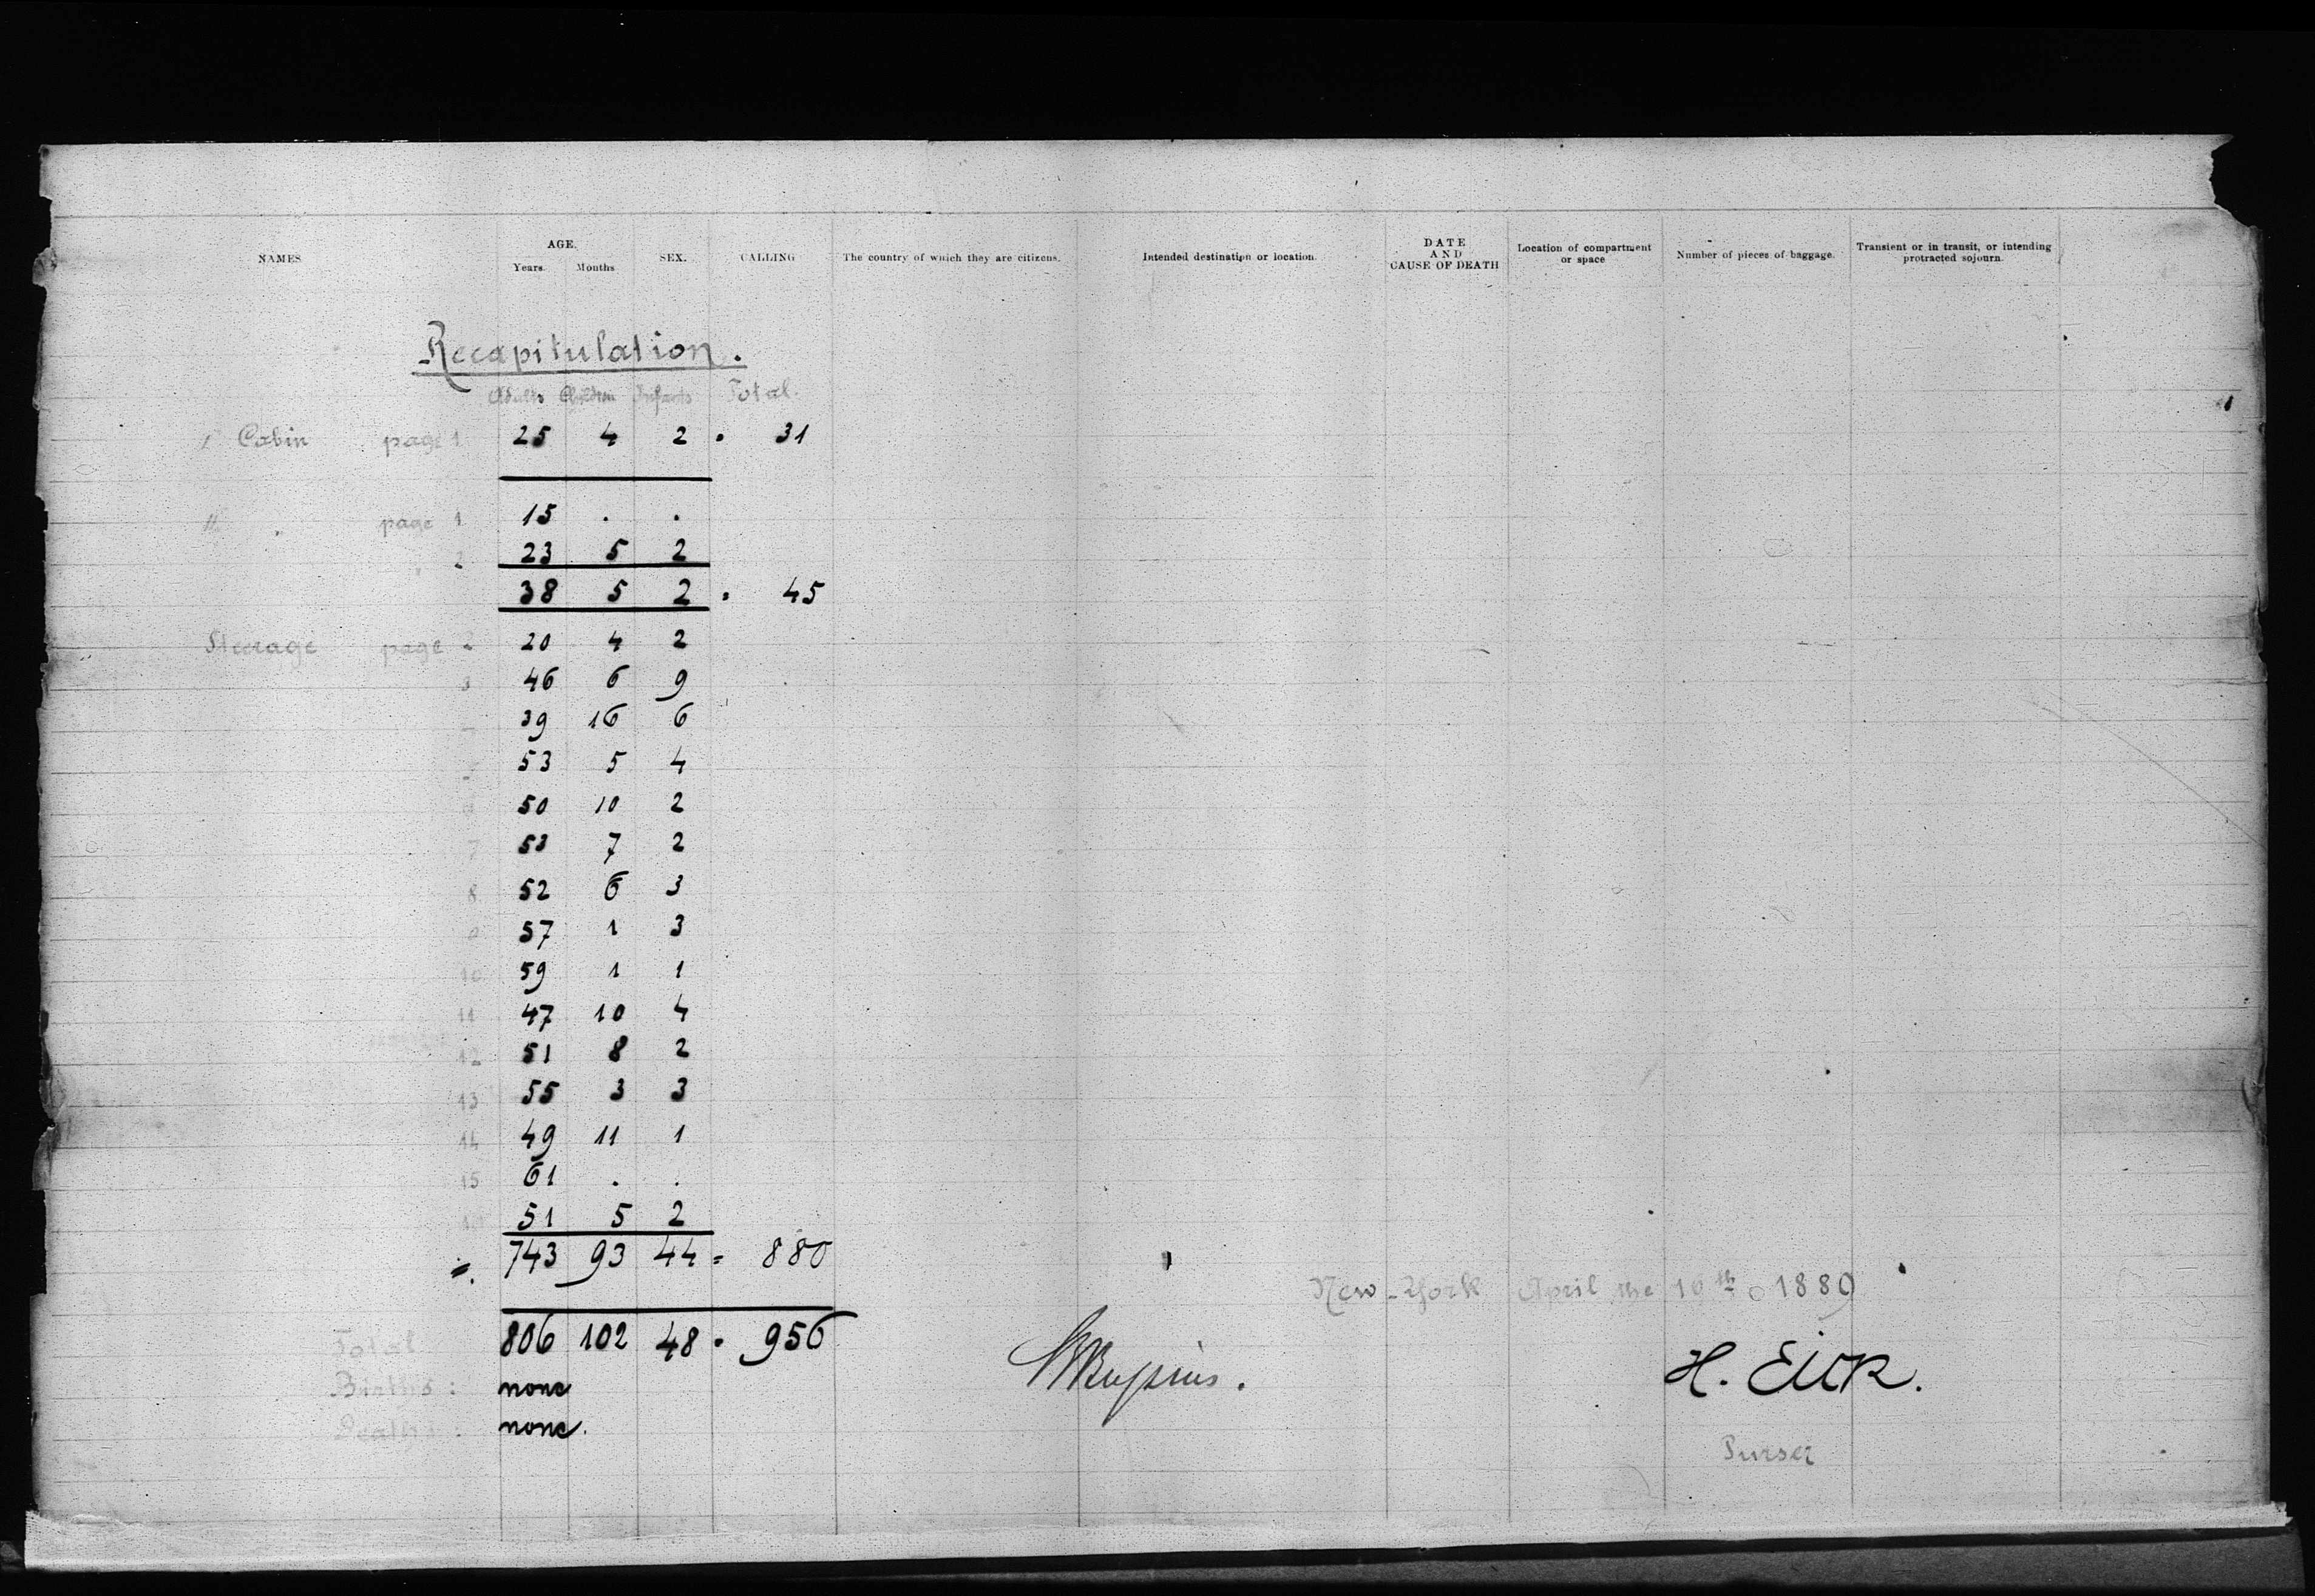 NAMES AGE. Years. Months SEX. CALLING The country of which they are citizens. Intended destination or location. DATE AND CAUSE OF DEATH Location of compartment or space Number of pieces of baggage. Transient or in transit, or intending protracted sojourn.
Recapitulation.
Adults Children Infants Total.
I Cabin page 1 25 4 2 = 31
II. " page 1 15 . .
2 23 5 2
38 5 2 = 45
Steerage page 2 20 4 2
3 46 6 9
39 16 6
5 53 5 4
50 10 2
7 53 7 2
8 52 6 3
9 57 1 3
10 59 1 1
11 47 10 4
12 51 8 2
13 55 3 3
14 49 11 1
15 61 . .
51 5 2
743 93 44 = 880
New-York April the 10th 1889
Total 806 102 48 = 956
H. Eick.
Births: none
Deaths: none.
Purser